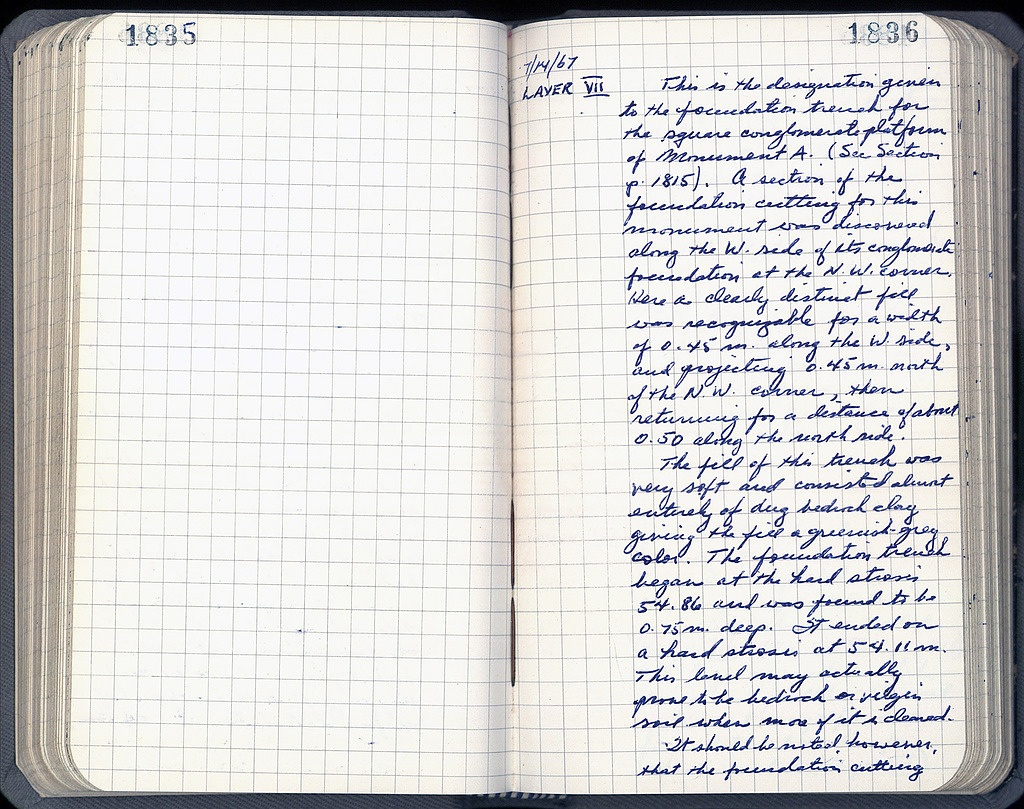 1835
1836
7/14/67
LAYER VII
This is the designation given
to the foundation trench for
the square conglomerate platform
of Monument A. (See Section
p. 1815). A section of the
foundation cutting for this
monument was discovered
along the W. side of its conglomerate
foundation at the N.W. corner.
Here a clearly distinct fill
was recognizable for a width
of 0.45 m. along the W. side,
and projecting 0.45 m. north
of the N.W. corner, then
returning for a distance of about
0.50 along the north side.
The fill of this trench was
very soft and consisted almost
entirely of dug bedrock clay
giving the fill a greenish-grey
color. The foundation trench
began at the hard strosis
54.86 and was found to be
0.75 m. deep. It ended on
a hard strosis at 54.11 m.
This level may actually
prove to be bedrock or virgin
soil when more of it is cleared.
It should be noted, however,
that the foundation cutting